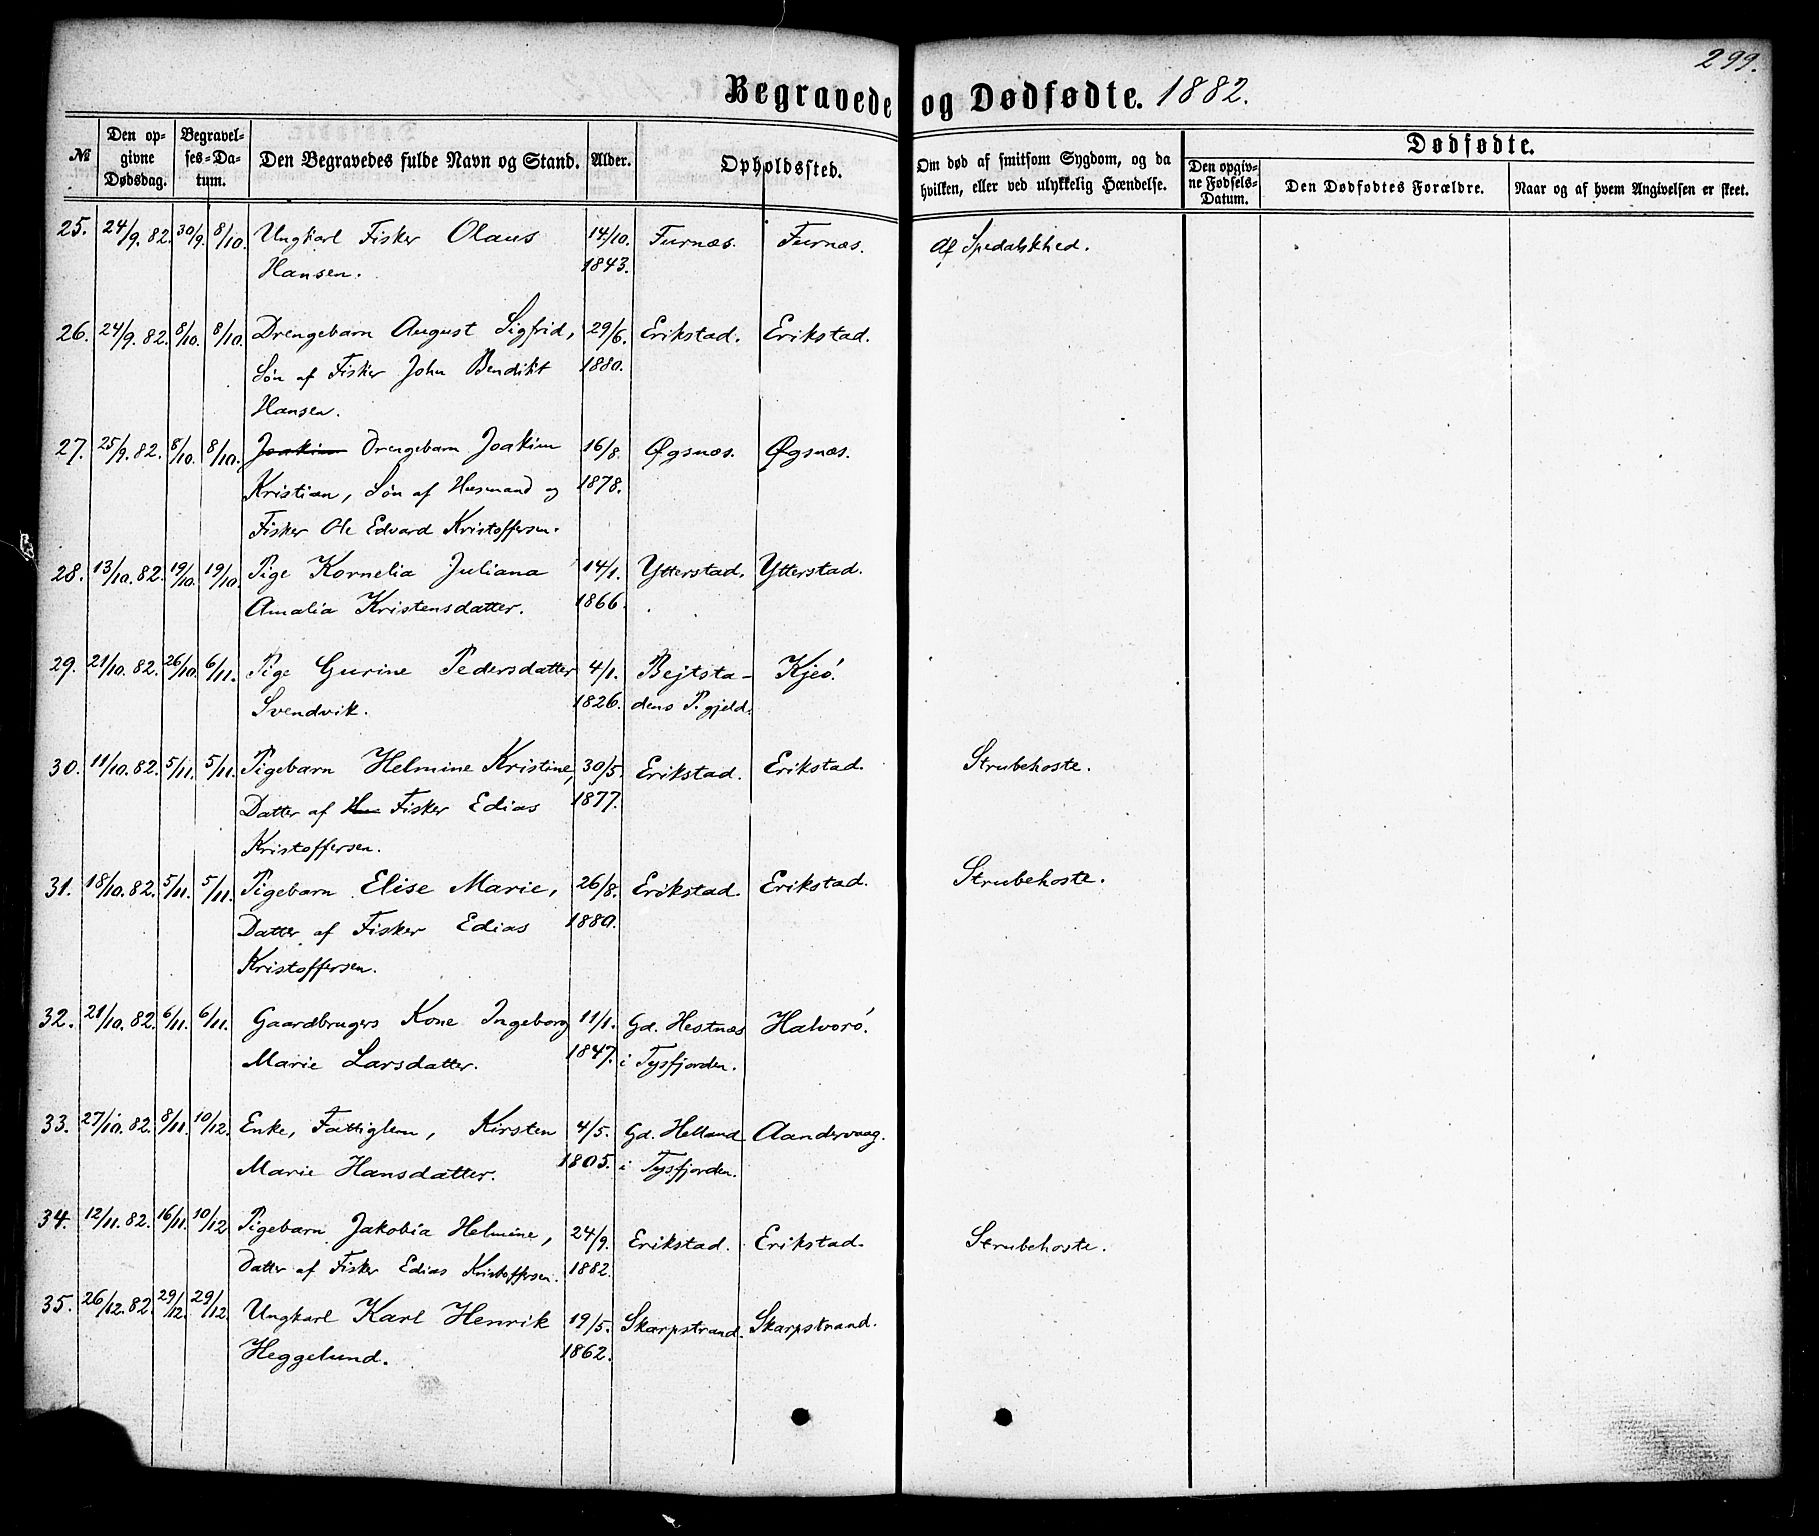 299.
Begravede og Dødfødte. 1882.
№
Den opgivne Dødsdag.
Begravelses-Datum.
Den Begravedes fulde Navn og Stand.
Alder.
Opholdssted.
Om død af smitsom Sygdom, og da hvilken, eller ved ulykkelig Hændelse.
Dødfødte.
Den opgivne Fødsels-Datum.
Den Dødfødtes Forældre.
Naar og af hvem Angivelsen er skeet.
25. 24/9. 82. 30/9. 8/10. Ungkarl Fisker Olaus 14/10. Furnæs. Furnæs. Af Spedalskhed.
Hansen. 1843.
26. 24/9. 82. 8/10. 8/10. Drengebarn August Sigfrid, 29/6. Erikstad. Erikstad.
Søn af Fisker John Bendikt 1880.
Hansen.
27. 25/9. 82. 8/10. 8/10. Joakim Drengebarn Joakim 16/8. Øgsnæs. Øgsnæs.
Kristian, Søn af Husmand og 1878.
Fisker Ole Edvard Kristoffersen.
28. 13/10. 82. 19/10. 19/10. Pige Kornelia Juliana 14/1. Ytterstad. Ytterstad.
Amalia Kristensdatter. 1866.
29. 21/10. 82. 26/10. 6/11. Pige Gurine Pedersdatter 4/1. Bejtsta- Kjeø.
Svendvik. 1826. dens P.gjeld.
30. 11/10. 82. 5/11. 5/11. Pigebarn Helmine Kristine, 30/5. Erikstad. Erikstad. Strubehoste.
Datter af Fisker Edias 1877.
Kristoffersen.
31. 18/10. 82. 5/11. 5/11. Pigebarn Elise Marie, 26/8. Erikstad. Erikstad. Strubehoste.
Datter af Fisker Edias 1880.
Kristoffersen.
32. 21/10. 82. 6/11. 6/11. Gaardbrugers Kone Ingeborg 11/1. Gd. Hestnæs Halvorø.
Marie Larsdatter. 1847. i Tysfjorden.
33. 27/10. 82. 8/11. 10/12. Enke, Fattiglem, Kirsten 4/5. Gd. Helland Aandervaag.
Marie Hansdatter. 1805. i Tysfjorden.
34. 12/11. 82. 16/11. 10/12. Pigebarn Jakobia Helmine, 24/9. Erikstad. Erikstad. Strubehoste.
Datter af Fisker Edias Kristoffersen. 1882.
35. 26/12. 82. 29/12. 29/12. Ungkarl Karl Henrik 19/5. Skarpstrand. Skarpstrand.
Heggelund. 1862.